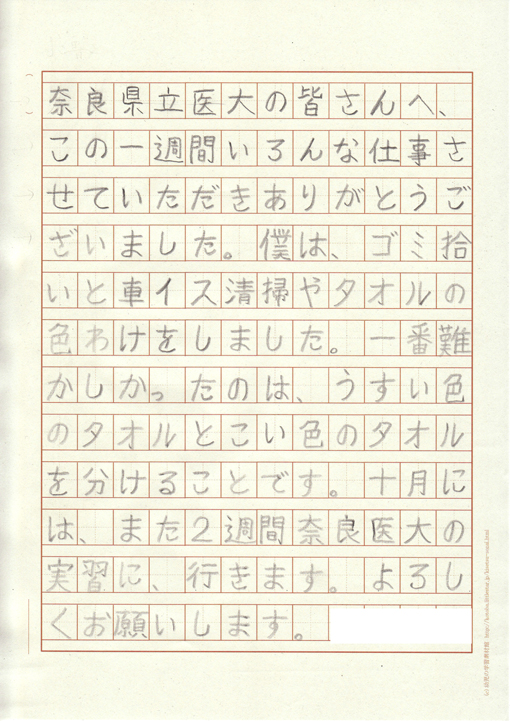 奈良県立医大の皆さんへ、
この一週間いろんな仕事さ
せていただきありがとうご
ざいました。僕は、ゴミ拾
いと車イス清掃やタオルの
色わけをしました。一番難
かしかったのは、うすい色
のタオルとこい色のタオル
を分けることです。十月に
は、また2週間奈良医大の
実習に、行きます。よろし
くお願いします。